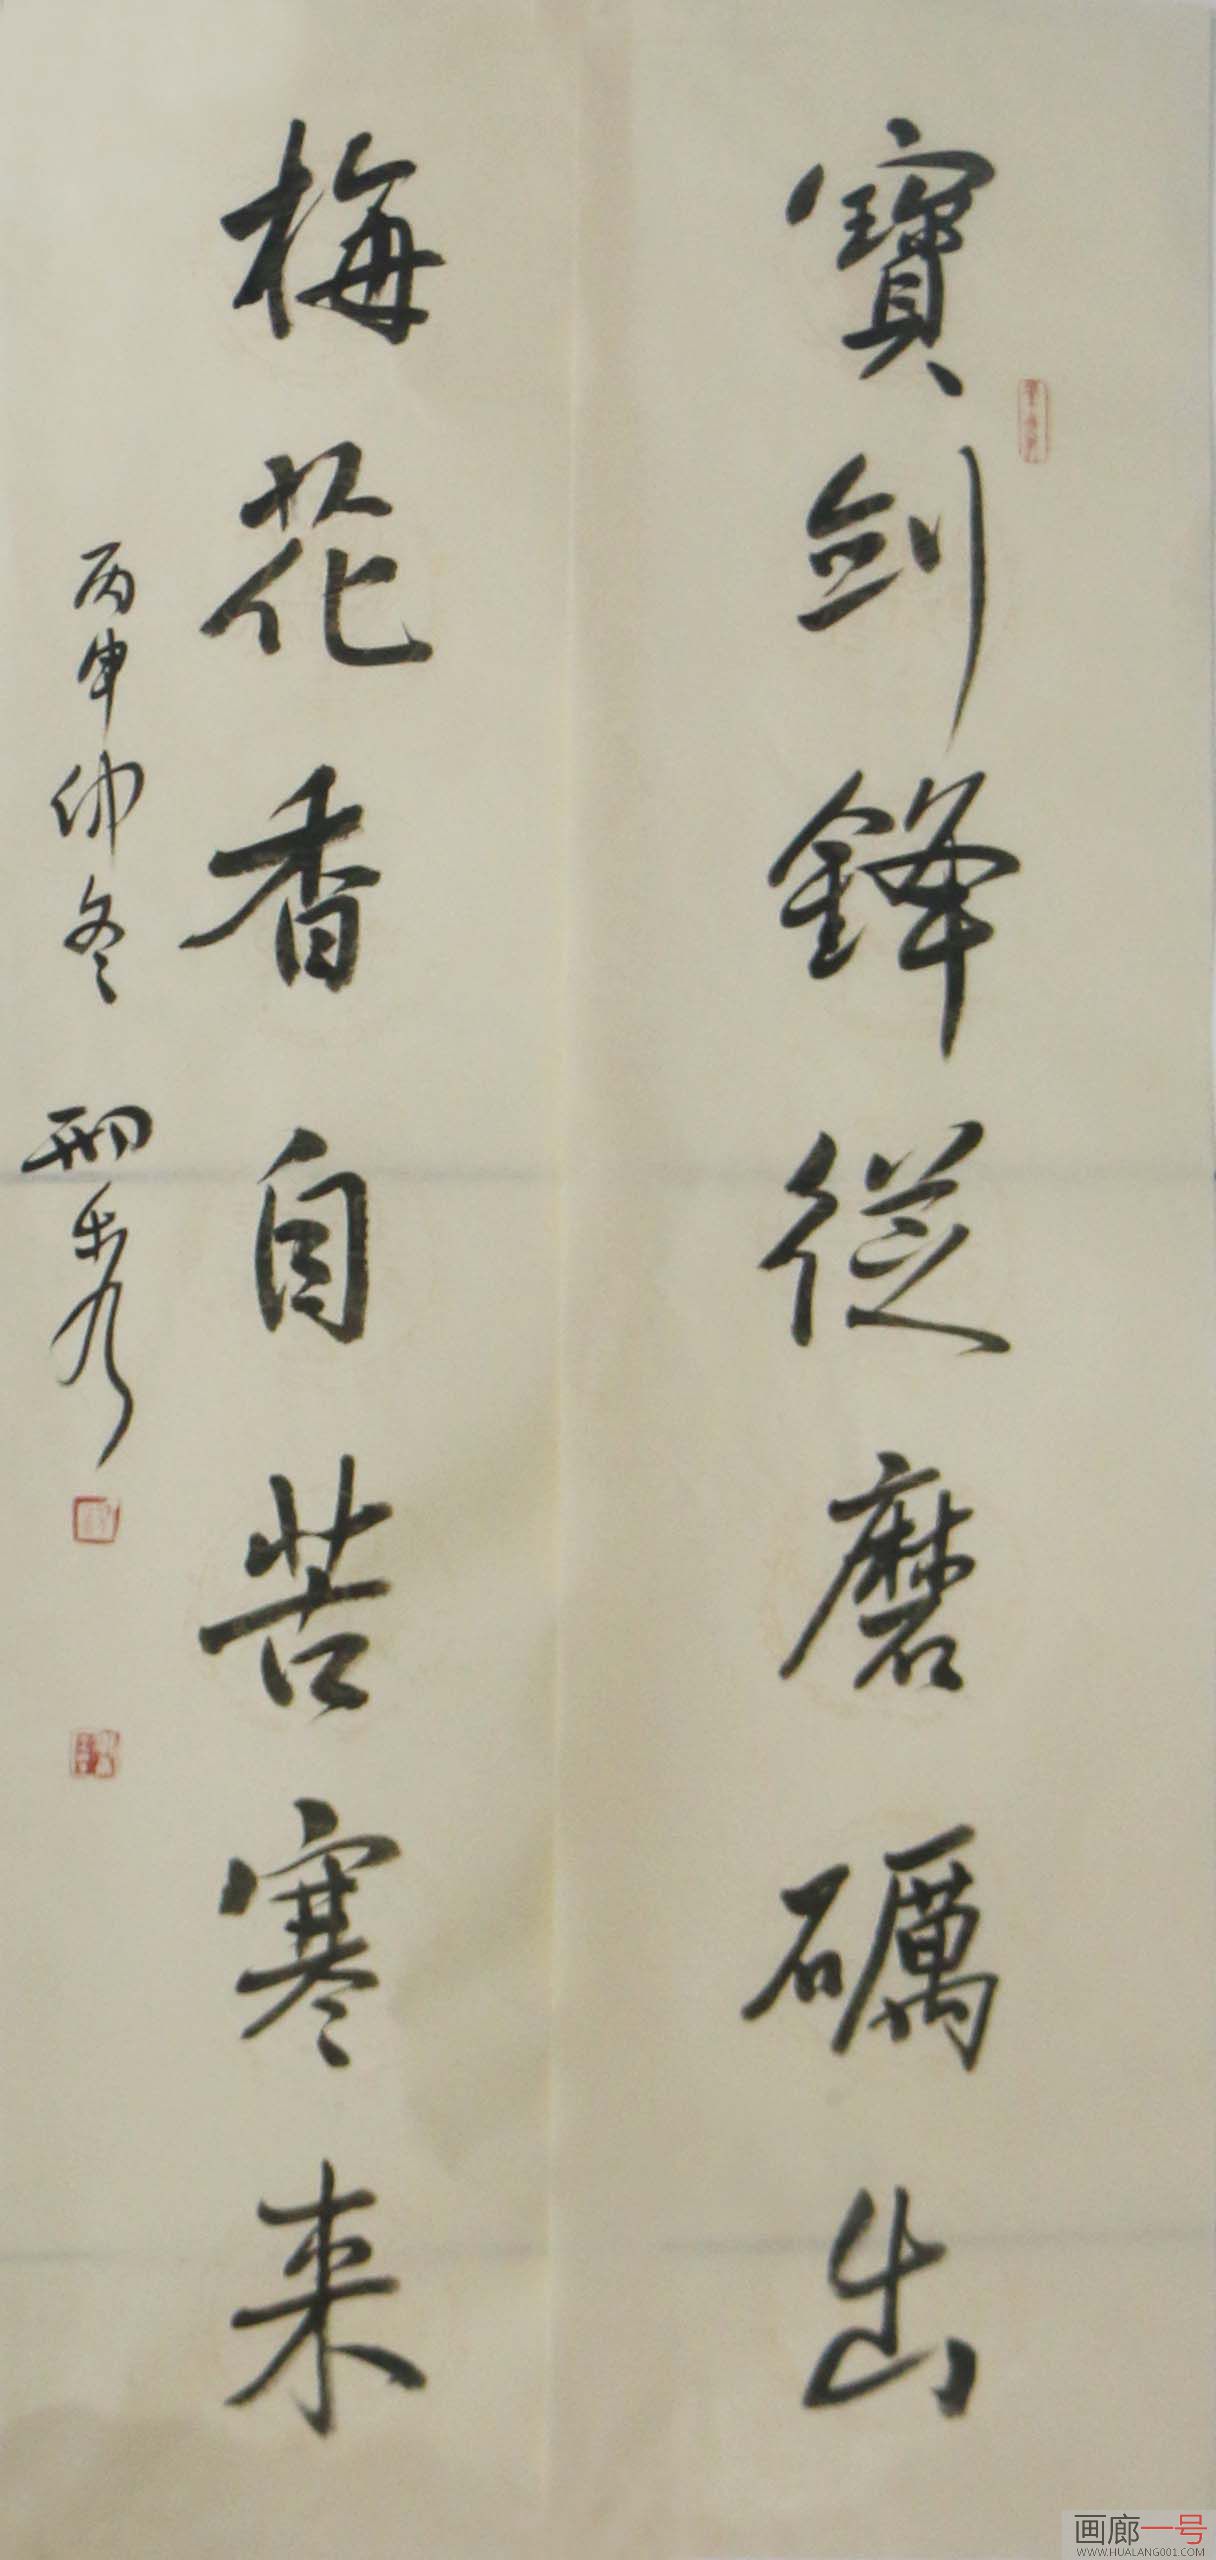 寶劍鋒從磨礪出
梅花香自苦寒来
丙申仲冬
画廊一号
WWW.HUALANG001.COM